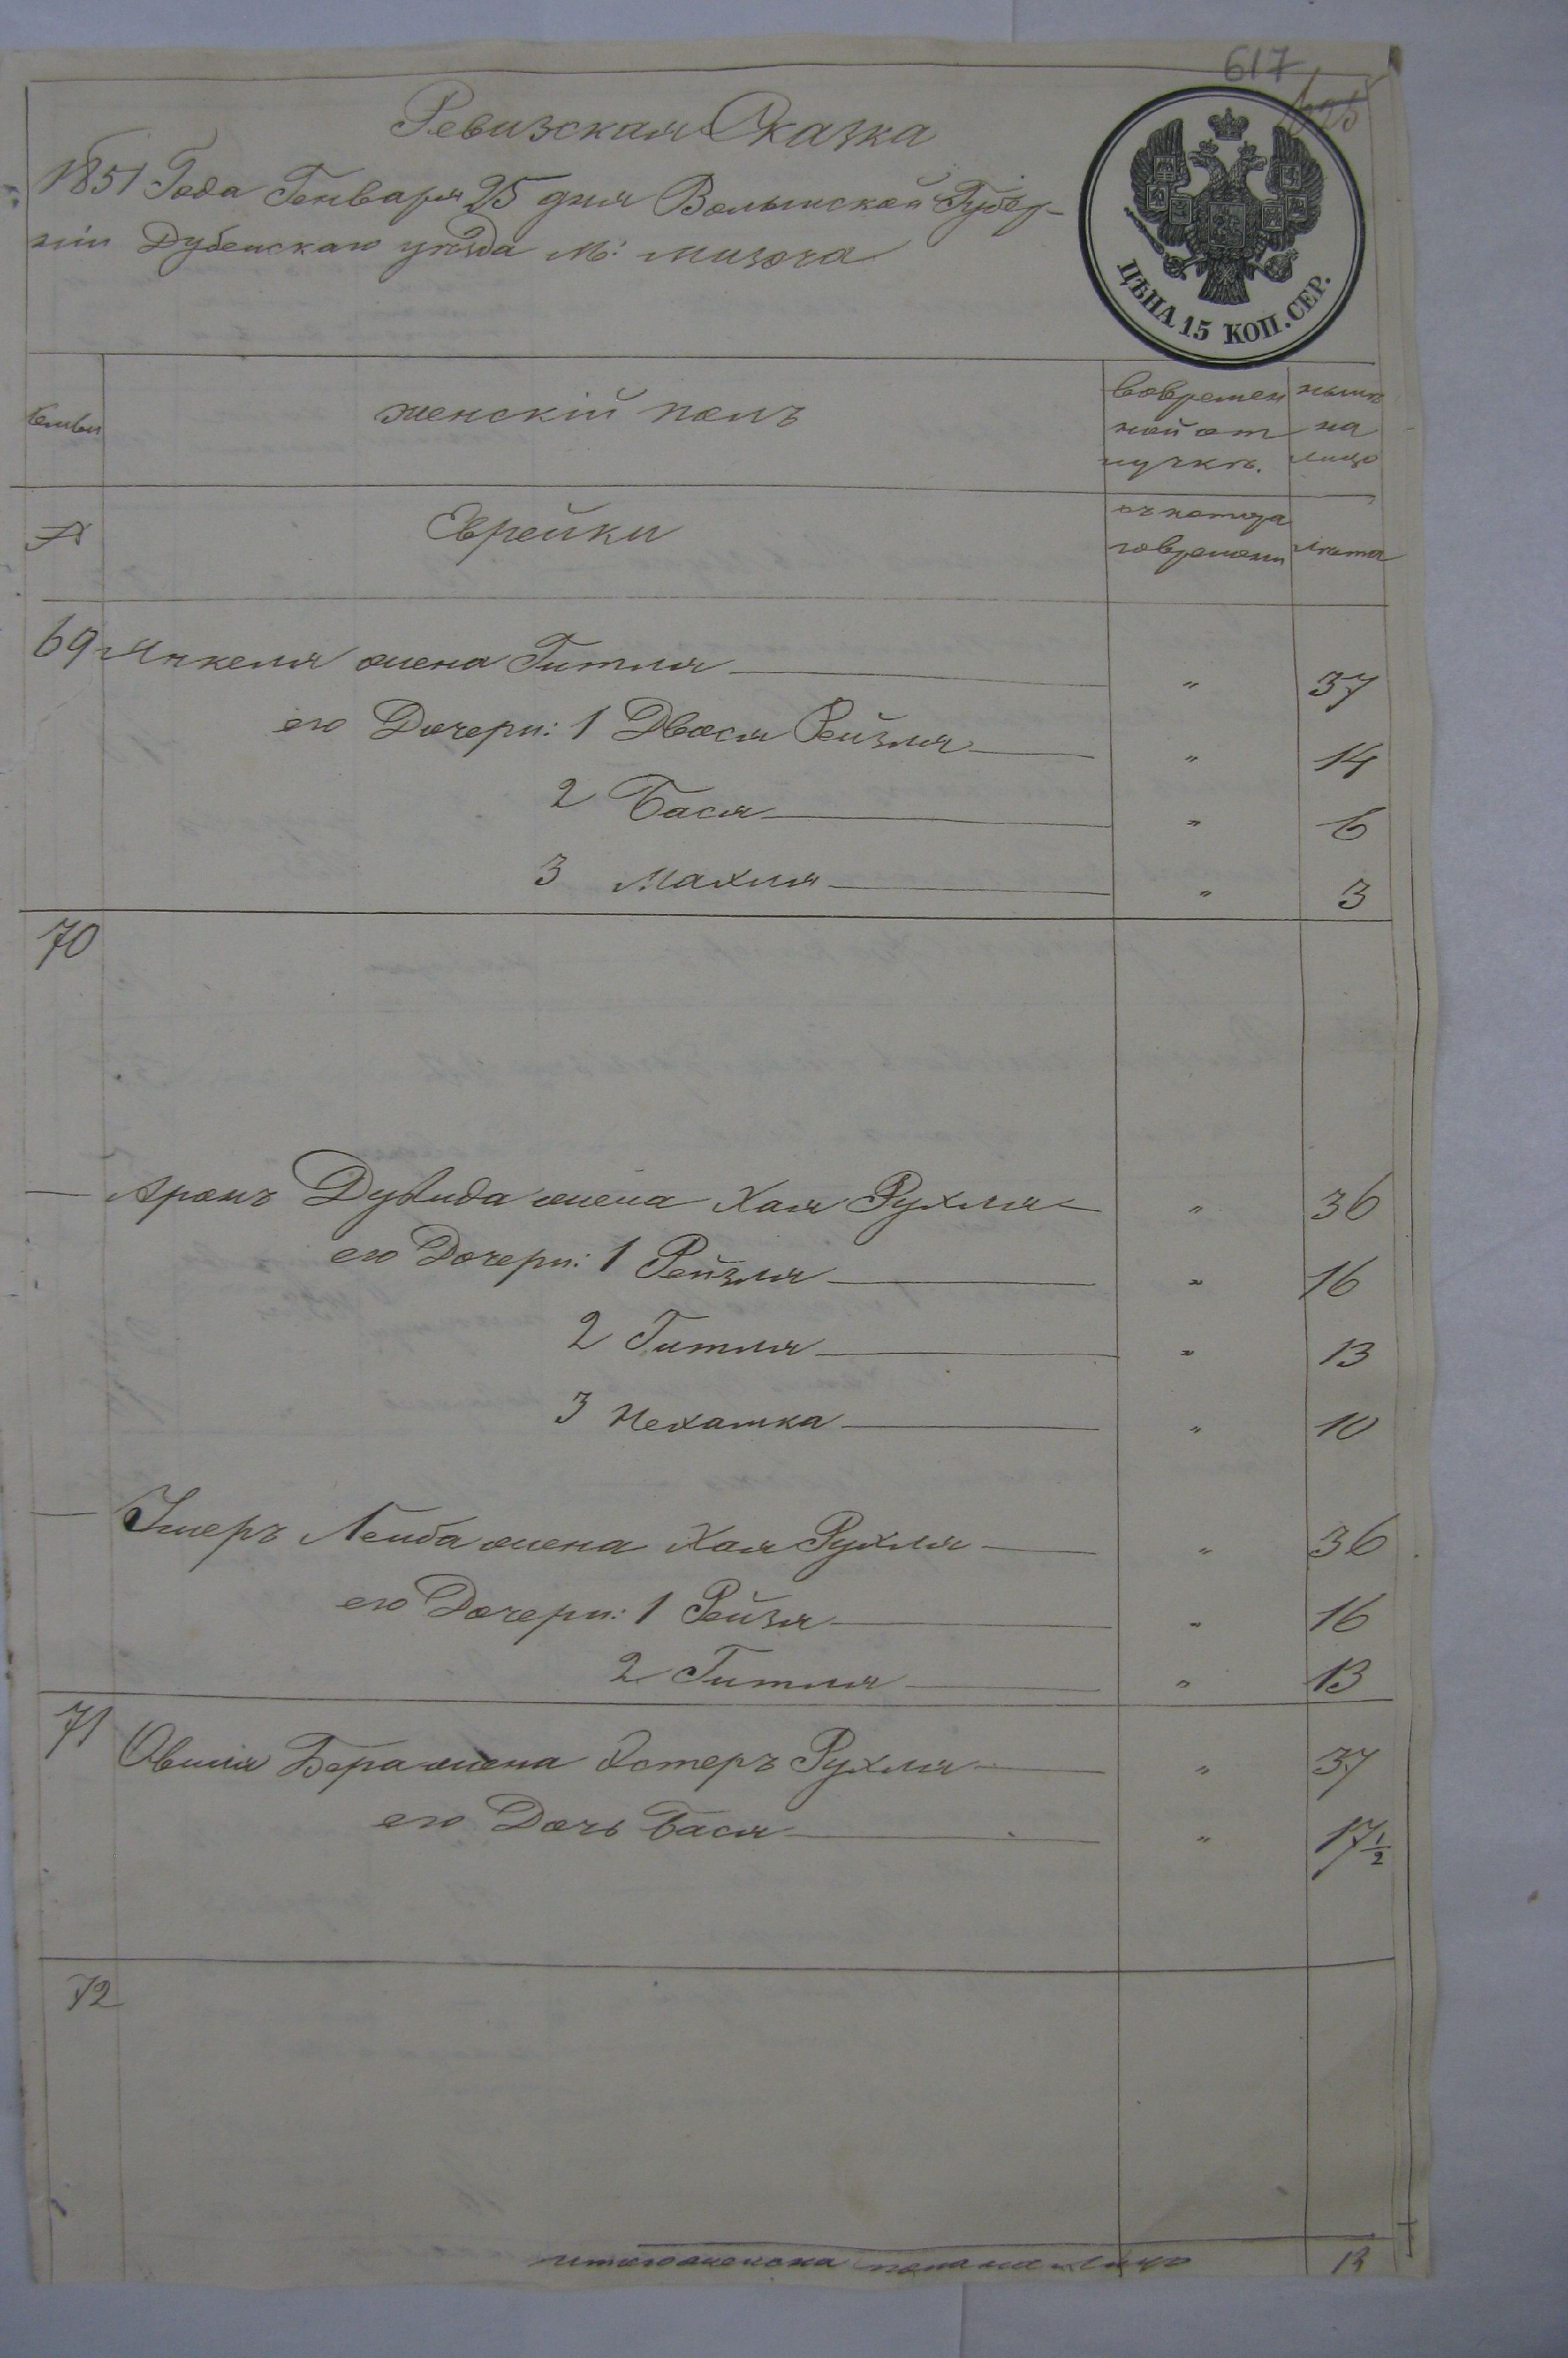 617
Ревизская Сказка
1851 Года Генваря 25 дня Волынской Губер-
нiи Дубенскаго уѣзда М: Мизоча
ЦѢНА 15 КОП. СЕР.
Семьи
женскiй полъ
вовремен
ной от
лучкѣ.
нынѣ
на
лицо
А
Еврейки
съ котора
го времени
лѣта
69 Янкеля жена Гитля " 37
его Дочери: 1 Двося Рейзля " 14
2 Бася " 6
3 Махля " 3
70
— Аронъ Дувида жена Хая Рухля " 36
его Дочери: 1 Рейзля " 16
2 Гитля " 13
3 Нехамка " 10
— Лейба жена Хая Рухля " 36
его Дочери: 1 Рейзя " 16
2 Гитля " 13
71 Бера жена Эстеръ Рухля " 37
его Дочь Бася " 17 1/2
72
итого женска пола на лицо 13